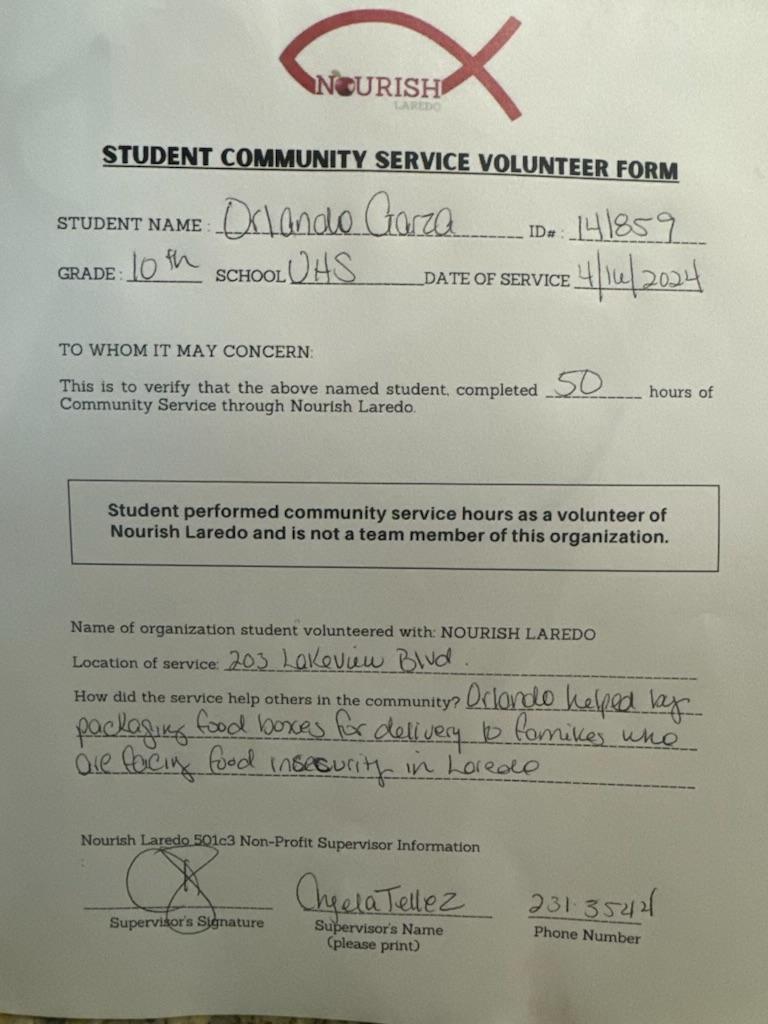 NOURISH
LAREDO
STUDENT COMMUNITY SERVICE VOLUNTEER FORM
STUDENT NAME: Orlando Garza ID#: 141859
GRADE: 10th SCHOOL UHS DATE OF SERVICE 4/16/2024
TO WHOM IT MAY CONCERN:
This is to verify that the above named student, completed 50 hours of
Community Service through Nourish Laredo.
Student performed community service hours as a volunteer of
Nourish Laredo and is not a team member of this organization.
Name of organization student volunteered with: NOURISH LAREDO
Location of service: 203 Lakeview Blvd.
How did the service help others in the community? Orlando helped by
packaging food boxes for delivery to families who
are facing food insecurity in Laredo
Nourish Laredo 501c3 Non-Profit Supervisor Information
Angela Tellez 231.3544
Supervisor's Signature Supervisor's Name Phone Number
(please print)